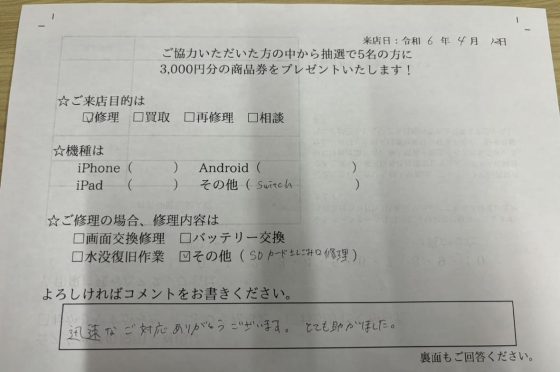 来店日：令和 6 年 4 月 12日
ご協力いただいた方の中から抽選で5名の方に
3,000円分の商品券をプレゼントいたします！
☆ご来店目的は
☑修理 □買取 □再修理 □相談
☆機種は
iPhone（　　　） Android（　　　　　）
iPad（　　　） その他（switch　　　　　）
☆ご修理の場合、修理内容は
□画面交換修理 □バッテリー交換
□水没復旧作業 ☑その他（SDカードさしこみ口修理）
よろしければコメントをお書きください。
迅速なご対応ありがとうございます。とても助かりました。
裏面もご回答ください。